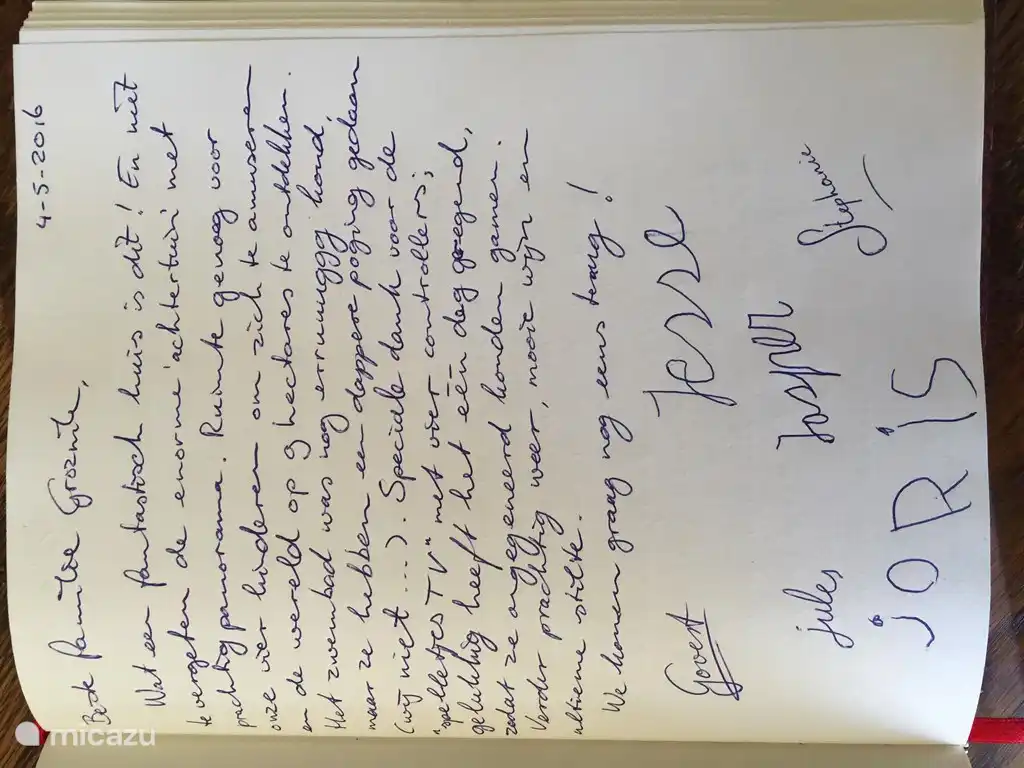 4-5-2016
Beste familie Grozuite,
Wat een fantastisch huis is dit! En niet
te vergeten de enorme achtertuin met
prachtig panorama. Ruimte genoeg voor
onze vier kinderen om zich te amuseren
en de wereld op 9 hectares te ontdekken.
Het zwembad was nog errrunggg koud,
maar ze hebben een dappere poging gedaan
(wij niet ....). Speciale dank voor de
"spelletjes TV" met vier controllers;
gelukkig heeft het één dag geregend,
zodat ze ongegeneerd konden gamen.
Verder prachtig weer, mooie wijn en
ultieme stilte.
We komen graag nog eens terug!
Govert Jesse
jules Jasper Stephanie
jORiS
micazu